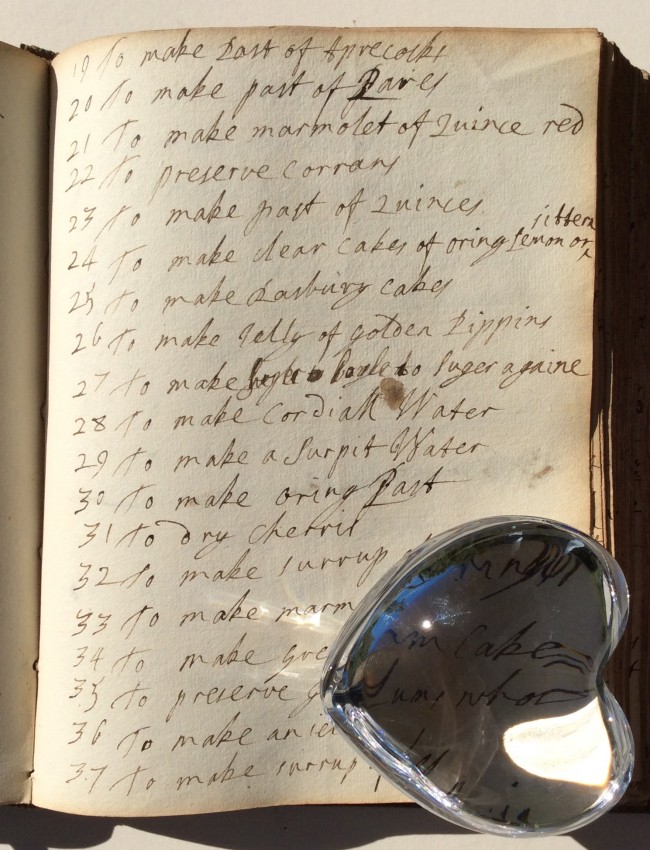 19 To make Past of Aprecocks
20 To make past of Pares
21 To make marmolet of Quince red
22 To preserve Corrans
23 To make past of Quinces
sittern
24 To make clear Cakes of oring Lemon or
25 To make Rasbury Cakes
26 To make Jelly of golden Pippins
27 To make to Suger againe
28 To make Cordiall Water
29 To make a Surpit Water
30 To make oring Past
31 To Dry Cherris
32 To make surrup
33 To make marm
34 To make Cake
35 To preserve
36 To make
37 To make surrup